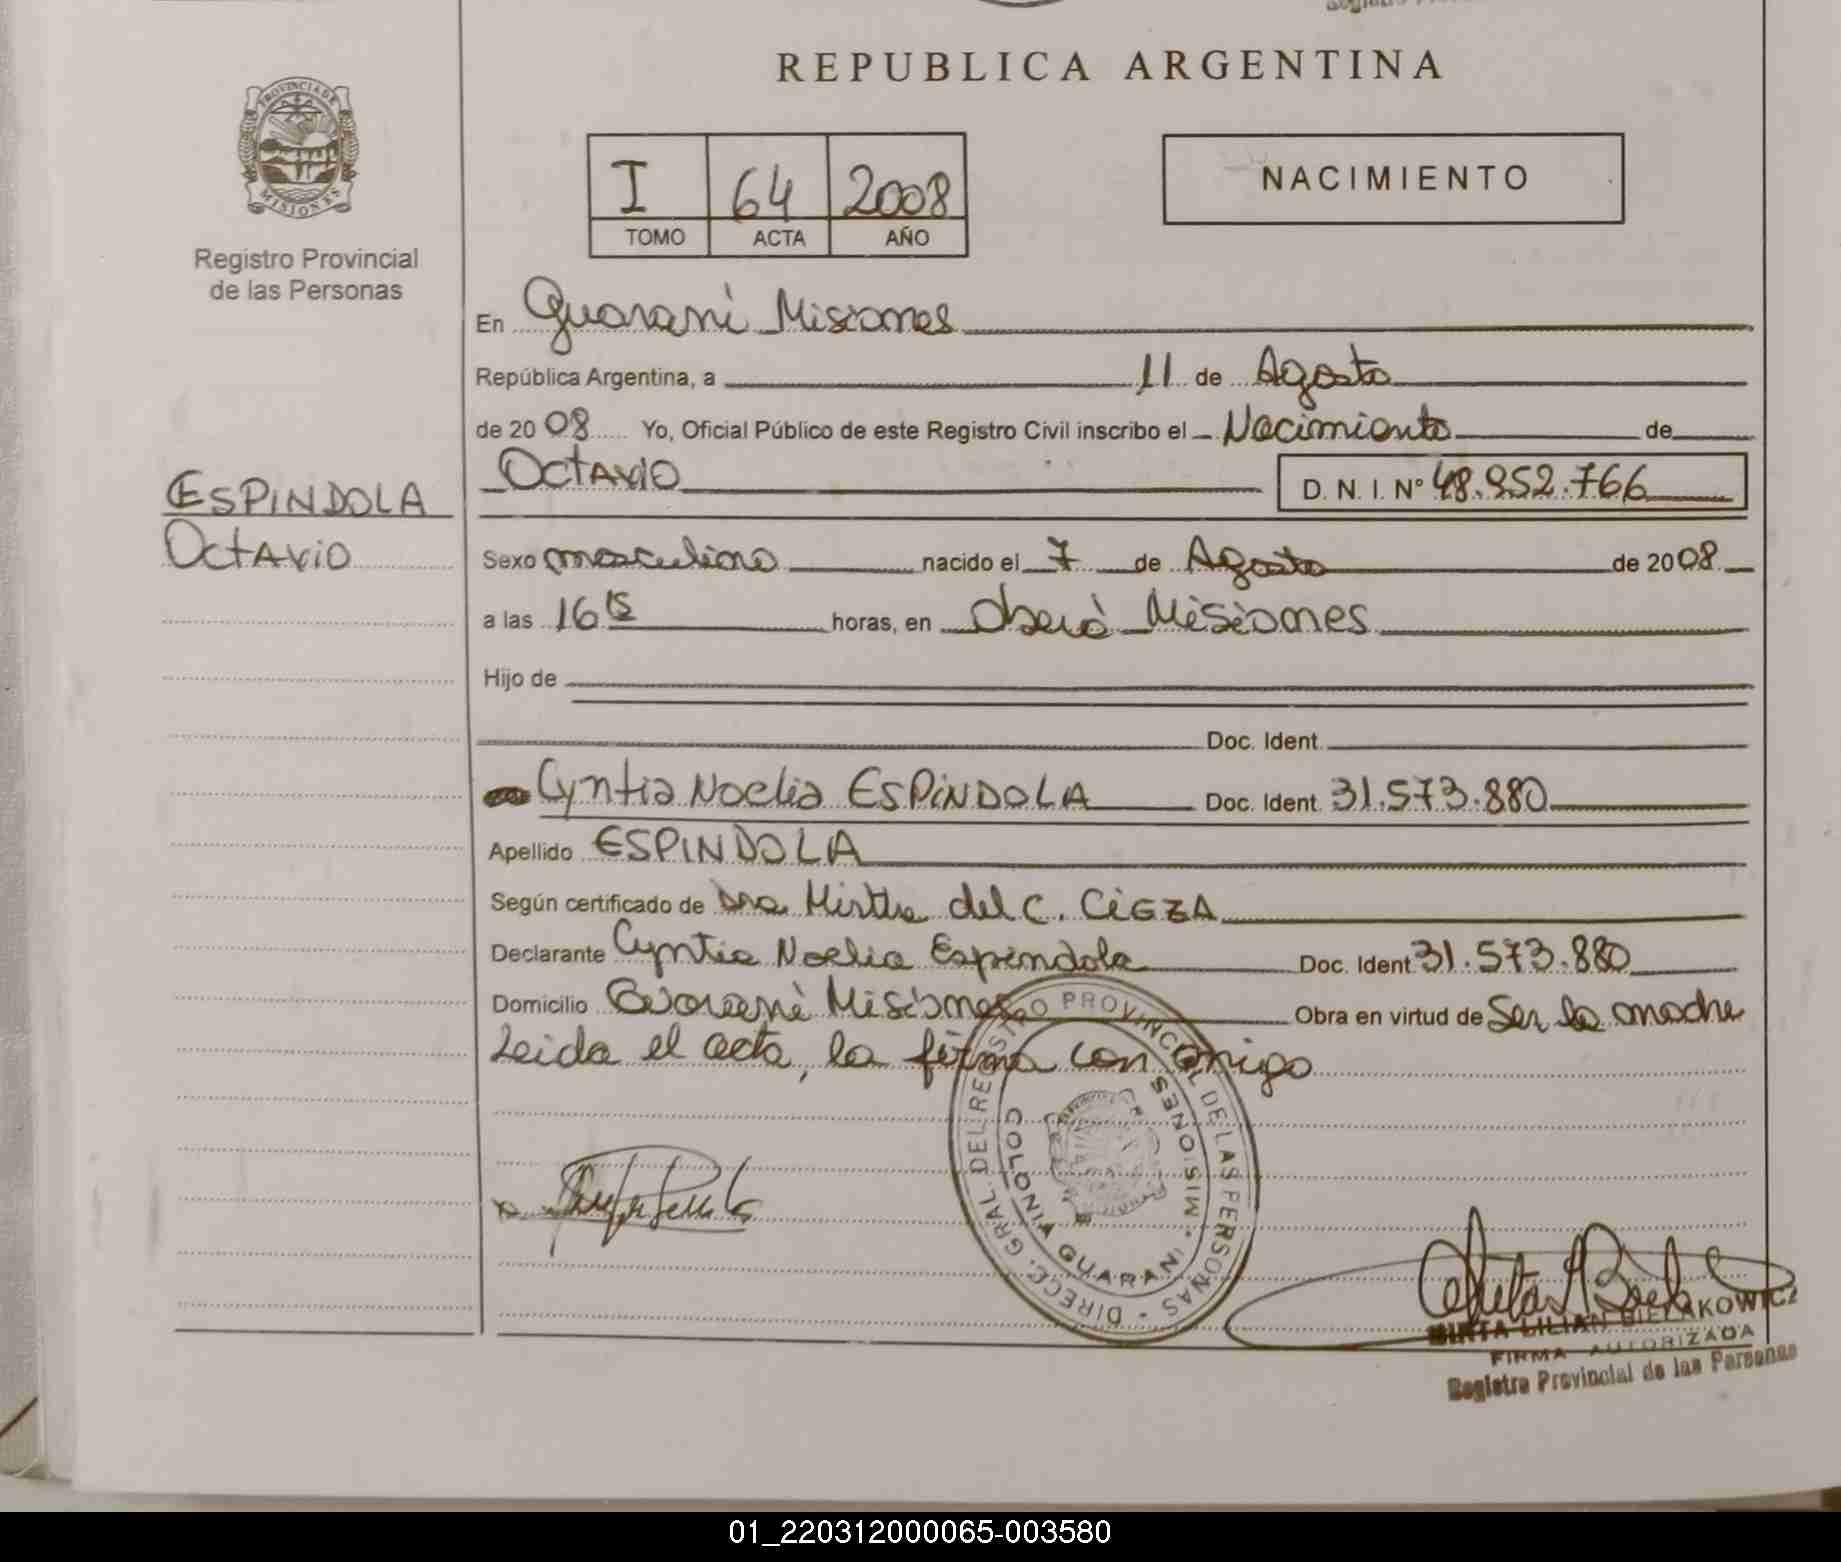 REPUBLICA ARGENTINA
PROVINCIA DE MISIONES
Registro Provincial
de las Personas
I 64 2008
TOMO ACTA AÑO
NACIMIENTO
En Guarani Misiones
República Argentina, a 11 de Agosto
de 2008 Yo, Oficial Público de este Registro Civil inscribo el Nacimiento de
Octavio D. N. I. Nº 48.952.766
ESPINDOLA
Octavio
Sexo masculino nacido el 7 de Agosto de 2008
a las 16 15 horas, en Oberá Misiones
Hijo de
Doc. Ident.
Cyntia Noelia ESPINDOLA Doc. Ident. 31.573.880
Apellido ESPINDOLA
Según certificado de Dra. Mirtha del C. CIEZA
Declarante Cyntia Noelia Espindola Doc. Ident 31.573.880
Domicilio Guarani Misiones Obra en virtud de Ser la madre
Leida el acta, la firma con migo
DIRECC. GRAL. DEL REGISTRO PROVINCIAL DE LAS PERSONAS
COLONIA GUARANI MISIONES
MIRTA LILIAN BIELAKOWICZ
FIRMA AUTORIZADA
Registro Provincial de las Personas
01_220312000065-003580